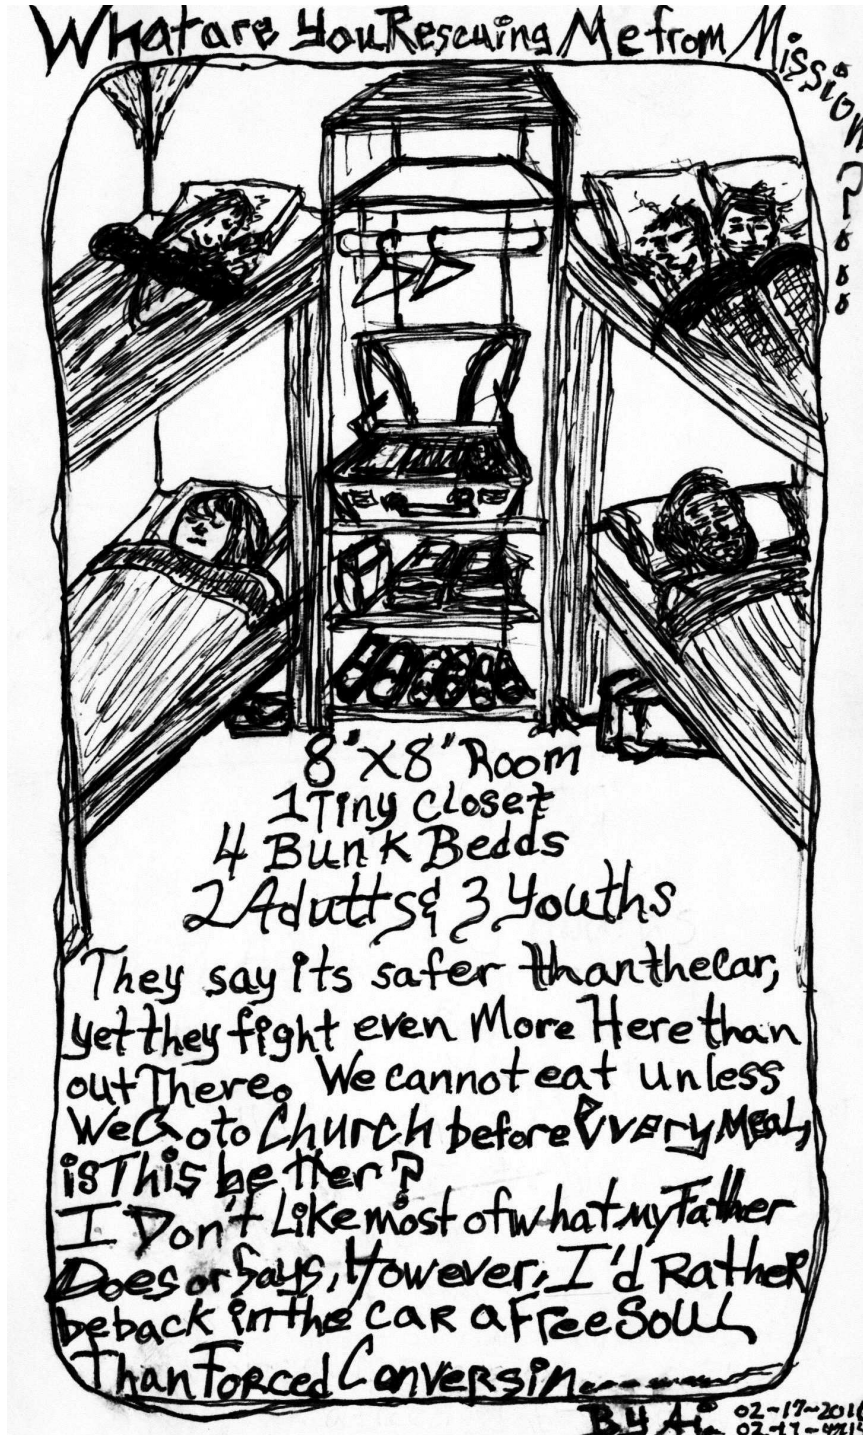 What are You Rescuing Me from Mission?...
8"x8" Room
1 Tiny closet
4 Bunk Bedds
2 Adults & 3 Youths
They say its safer than the car,
yet they fight even More Here than
out There. We cannot eat unless
We Go to Church before Every Meal,
is This better?
I Don't Like most of what my Father
Does or Says, However, I'd Rather
be back in the car a Free Soul
Than Forced Conversin...
By Ai. 02-17-2016
02-17-